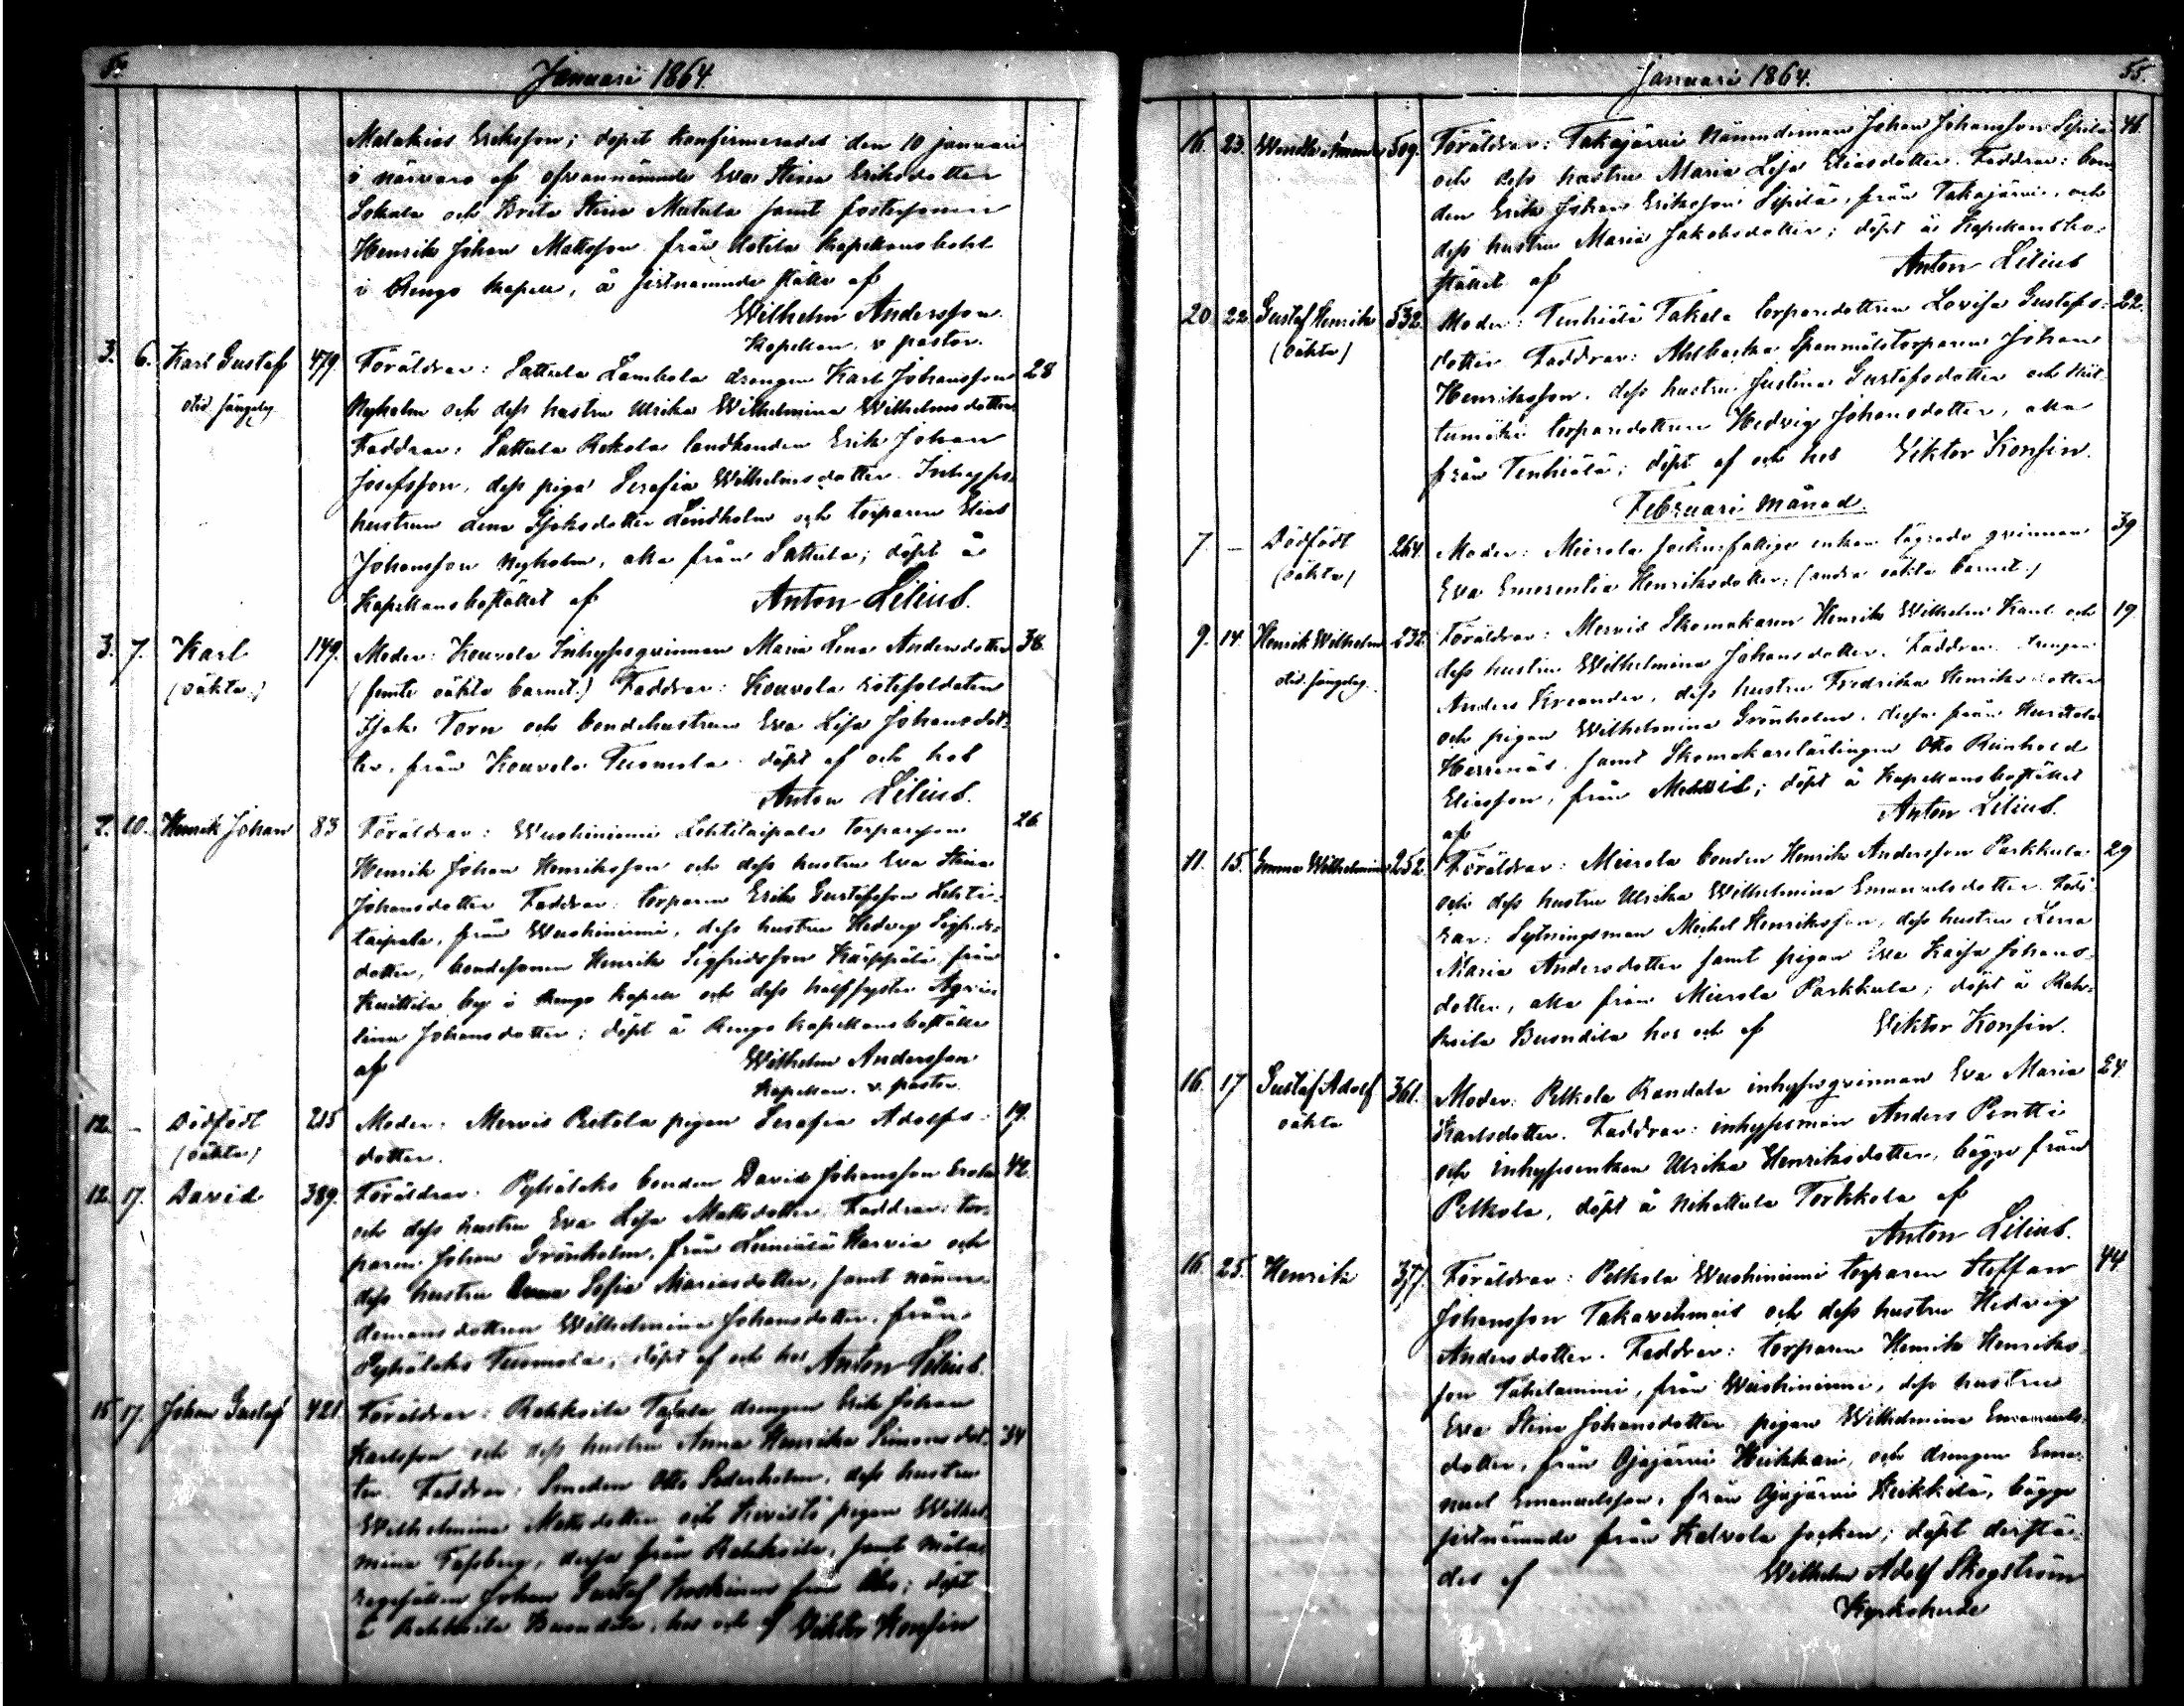 Januari 1864.
Malakias Eriksson; dopet konfirmerades den 10 januari
i närvaro af ofvannämnde Eva Stina Eriksdotter
Sokala och Brita Stina Matula samt fostersonen
Henrik Johan Mattsson från Kapellansbohl
i Rengo kapell, å sistnämnde ställe af
Wilhelm Andersson
Kapellan, v. pastor.
3. 6. Karl Gustaf 479. Föräldrar: Sattula Lambola drengen Karl Johansson 28
Nyholm och dess hustru Ulrika Wilhelmina Wilhelmsdotter
Faddrar: Sattula Rekola landbonden Erik Johan
Josefsson, dess piga Serafia Wilhelmsdotter. Inhyses
hustrun Lena Isaksdotter Lindholm och torparen Elias
Johansson Nyholm, alla från Sattula; döpt å
Kapellansbostället af Anton Lilius.
3. 7. Karl 149. Moder: Kouvola Inhysesqvinnan Maria Lena Andersdotter 38.
(oäkta) (femte oäkta barnet.) Faddrar: Kouvola rotesoldaten
Isak Torn och bondehustrun Eva Lisa Johansdot-
ter, från Kouvola Tuomola. döpt af och hos
Anton Lilius.
7. 10. Henrik Johan 83 Föräldrar: Wuohiniemi Lehtitaipale torparson 26.
Henrik Johan Henriksson och dess hustru Eva Stina
Johansdotter Faddrar: torparen Erik Gustafsson Lehti-
taipale, från Wuohiniemi, dess hustru Hedvig Sigfrids-
dotter, bondesonen Henrik Sigfridsson Kärppälä från
Kuittila by i Rengo kapell och dess halfsyster
Johansdotter; döpt å Rengo Kapellansboställe
af Wilhelm Andersson
Kapellan. v. pastor.
12. – Dödfödt 215 Moder: Mervis Pietola pigan Serafia Adolfs- 19.
(oäkta) dotter.
12. 17. David 389. Föräldrar: Pyhälaks bonden David Johansson Erola 42.
och dess hustru Eva Lisa Mattsdotter. Faddrar: tor-
paren Johan Grönholm, från Luiniälä Harvia och
dess hustru Anna Sofia Mariasdotter, samt nämn-
demansdottren Wilhelmina Johansdotter, från
Tuomola; döpt af och hos Anton Lilius.
15. 17. Johan Gustaf 421. Föräldrar: Rahkoila Tapala drengen Erik Johan
Karlsson och dess hustru Anna Henrika Simonsdot- 34
ter. Faddrar: Smeden Otto Sederholm, dess hustru
Wilhelmina Mattsdotter och Kivistö pigan Wilhel-
mina Forsberg, dessa från Rahkoila, samt måla-
regesällen Johan Gustaf Koskinen från Åbo; döpt
å Rahkoila Buondila, hos och af Viktor Konsin
Januari 1864. 55.
16. 23. Wendla Amanda 509. Föräldrar: Takajärvi Nämndeman Johan Johansson Sipilä 46.
och dess hustru Maria Lisa Eliasdotter. Faddrar: bon-
den Erik Johan Eriksson Sipilä, från Takajärvi, och
dess hustru Maria Jakobsdotter; döpt å Kapellansbo-
stället af Anton Lilius
20 22. Gustaf Henrik 532. Moder: Tenhiälä Takala torparedottren Lovisa Gustafs- 22.
(oäkta) dotter Faddrar: Ahlbacka Spanmålstorparen Johan
Henriksson, dess hustru Justina Gustafsdotter och
torparedottren Hedvig Johansdotter, alla
från Tenhiälä; döpt af och hos Viktor Konsin.
Februari månad.
7. – Dödfödt 264. Moder: Mierola sockenfattige enkan lägrade qvinnan 39
(oäkta) Eva Emerentia Henriksdotter; (andra oäkta barnet.)
9. 14. Henrik Wilhelm 232. Föräldrar: Mervis Skomakaren Henrik Wilhelm Kant och 19.
dess hustru Wilhelmina Johansdotter. Faddrar: drengen
Anders Kreander, dess hustru Fredrika Henriksdotter
och pigan Wilhelmina Grönholm, dessa från
Herrenäs samt Skomakarelärlingen Otto Reinhold
Eliasson, från Mervis; döpt å Kapellansbostället
af Anton Lilius.
11. 15. Emma Wilhelmina 252. Föräldrar: Mierola bonden Henrik Andersson Parkkula 29
och dess hustru Ulrika Wilhelmina Emanuelsdotter. Fad-
rar: Sytningsman Mickel Henriksson, dess hustru Lena
Maria Andersdotter samt pigan Eva Kaisa Johans-
dotter, alla från Mierola Parkkula; döpt å Rah-
koila Buondila hos och af Viktor Konsin.
16. 17 Gustaf Adolf 361. Moder: Pelkola Randala inhysesqvinnan Eva Maria 24.
oäkta Karlsdotter. Faddrar: inhysesman Anders Pentti
och inhysesenkan Ulrika Henriksdotter, bägge från
Pelkola, döpt å Nihattula Torkkola af
Anton Lilius.
16. 25. Henrik 377. Föräldrar: Pelkola Wuohiniemi torparen Staffan 44.
Johansson Takavehmais och dess hustru Hedvig
Andersdotter. Faddrar: torparen Henrik Henriks-
son Tahilaniemi, från Wuohiniemi, dess hustru
Eva Stina Johansdotter pigan Wilhelmina Emanuels-
dotter, från Ojajärvi Heikkari, och drengen Ema-
nuel Emanuelsson, från Ojajärvi Heikkilä, bägge
sistnämnde från Kalvola socken; döpt derstä-
des af Wilhelm Adolf Skogström
Kyrkoherde